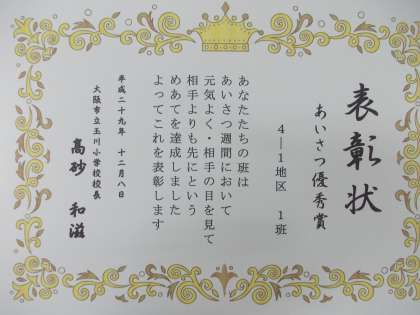 表彰状
あいさつ優秀賞
4―1地区　1班
あなたたちの班は
あいさつ週間において
元気よく・相手の目を見て
相手よりも先にという
めあてを達成しました
よってこれを表彰します
平成二十九年　十二月八日
大阪市立玉川小学校校長
高砂　和滋